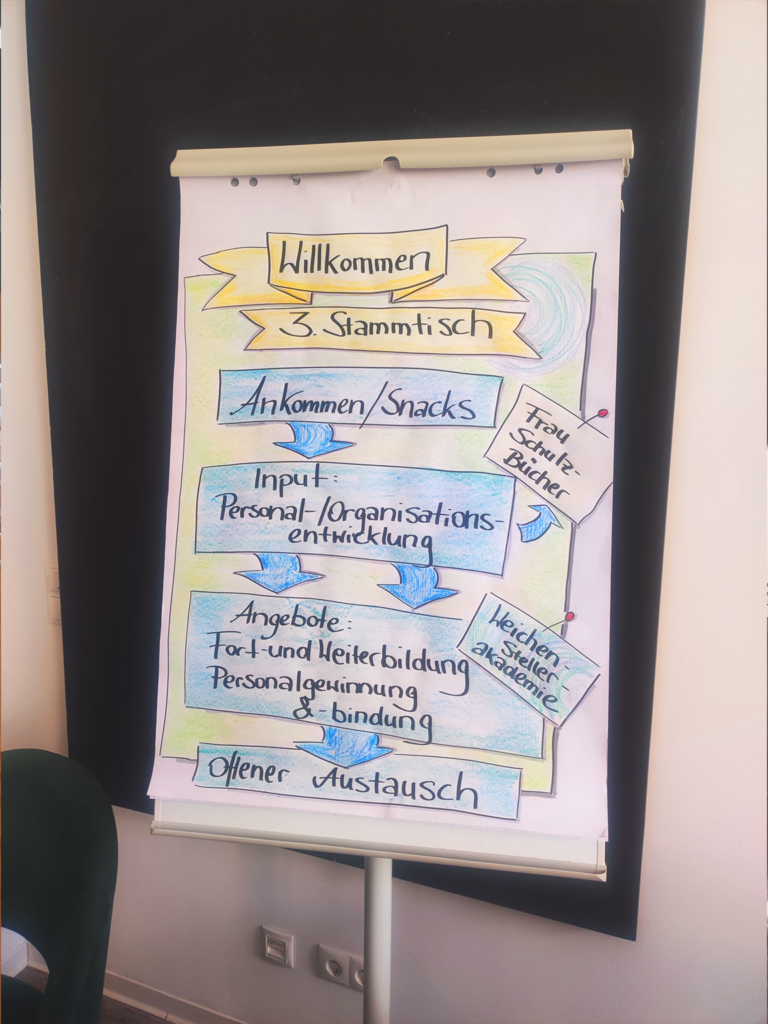 Willkommen
3. Stammtisch
Ankommen/Snacks
Frau
Schulz-
Bücher
Input:
Personal-/Organisations-
entwicklung
Angebote:
Fort- und Weiterbildung
Personalgewinnung
& -bindung
Weichen-
Steller-
akademie
Offener Austausch